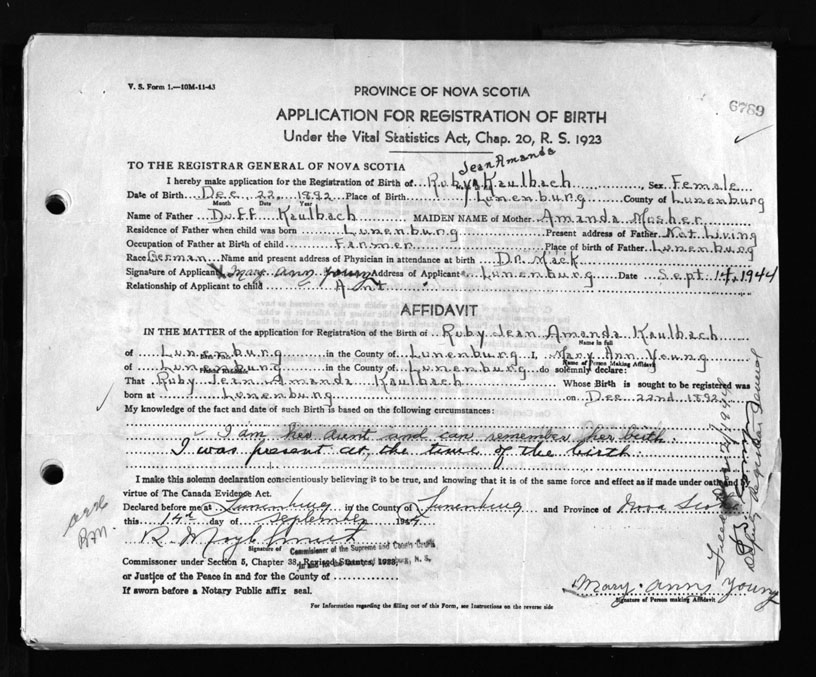 V. S. Form 1.—10M-11-43
PROVINCE OF NOVA SCOTIA
6789
APPLICATION FOR REGISTRATION OF BIRTH
Under the Vital Statistics Act, Chap. 20, R. S. 1923
TO THE REGISTRAR GENERAL OF NOVA SCOTIA
Jean Amanda
I hereby make application for the Registration of Birth of Ruby Kaulbach, Sex Female
Date of Birth Dec. 22, 1892 Place of Birth Lunenburg County of Lunenburg
Month Date Year
Name of Father Duff Kaulbach MAIDEN NAME of Mother Amanda Mosher
Residence of Father when child was born Lunenburg Present address of Father Not Living
Occupation of Father at Birth of child Farmer Place of birth of Father Lunenburg
Race German Name and present address of Physician in attendance at birth Dr. Mack
Signature of Applicant Mary Ann Young Address of Applicant Lunenburg Date Sept. 14, 1944
Relationship of Applicant to child Ant
AFFIDAVIT
IN THE MATTER of the application for Registration of the Birth of Ruby Jean Amanda Kaulbach
Name in full
of Lunenburg in the County of Lunenburg I, Mary Ann Young
Name of Person Making Affidavit
of Lunenburg in the County of Lunenburg do solemnly declare:
That Ruby Jean Amanda Kaulbach Whose Birth is sought to be registered was
born at Lunenburg on Dec. 22nd 1892
My knowledge of the fact and date of such Birth is based on the following circumstances:
I am her aunt and can remember her birth.
I was present at the time of the birth.
I make this solemn declaration conscientiously believing it to be true, and knowing that it is of the same force and effect as if made under oath and by
virtue of The Canada Evidence Act.
Declared before me at Lunenburg in the County of Lunenburg and Province of Nova Scotia
this 14th day of September 1944
R.
Signature of Commissioner of the Supreme and County Courts
Commissoner under Section 5, Chapter 38, Revised Statutes, 1923,
or Justice of the Peace in and for the County of
If sworn before a Notary Public affix seal.
Mary Ann Young
Signature of Person making Affidavit
For Information regarding the filling out of this Form, see Instructions on the reverse side
Deputy Registrar General